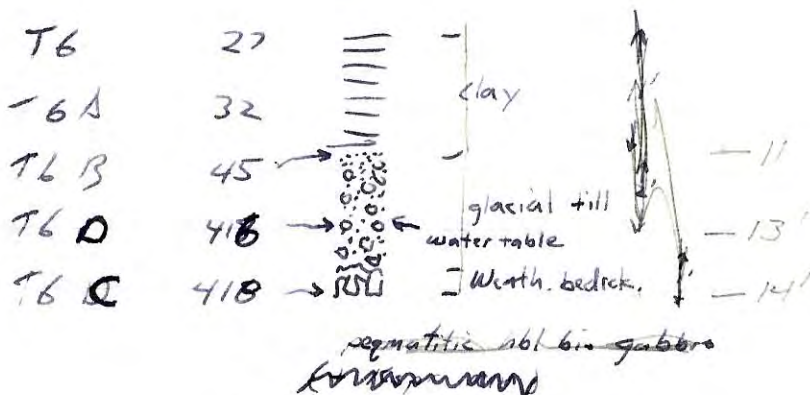 T6 27
T6 A 32 clay
T6 B 45 — 11
T6 D 416 glacial till — 13'
water table
T6 C 418 Weath. bedrck. — 14'
pegmatitic hbl bio gabbro